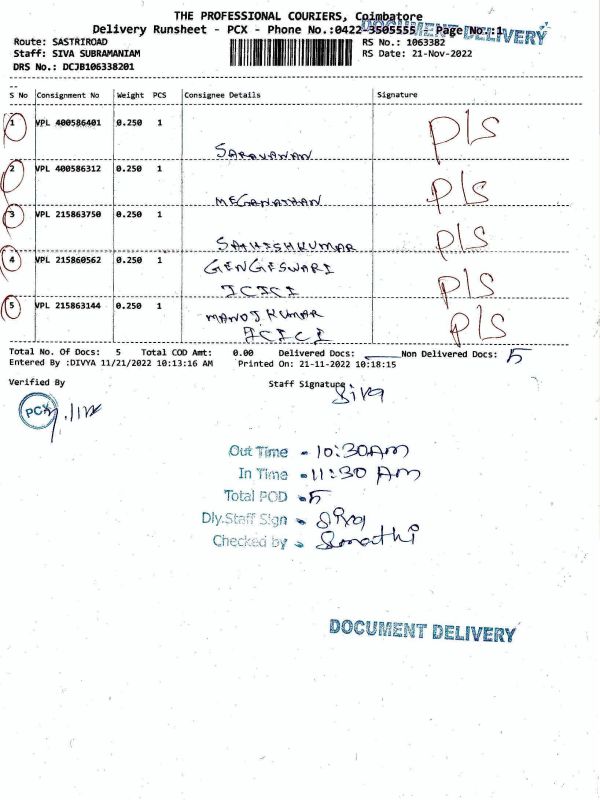 THE PROFESSIONAL COURIERS, Coimbatore
Delivery Runsheet - PCX - Phone No.:0422-3505555 Page No.:1
DOCUMENT DELIVERY
Route: SASTRIROAD
RS No.: 1063382
Staff: SIVA SUBRAMANIAM
RS Date: 21-Nov-2022
DRS No.: DCJB106338201
S No Consignment No Weight PCS Consignee Details Signature
1 VPL 400586401 0.250 1 P/S
SARAVANAN
2 VPL 400586312 0.250 1 P/S
MEGANATHAN
3 VPL 215863750 0.250 1 P/S
SATHISHKUMAR
4 VPL 215860562 0.250 1 GENGESWARI P/S
ICICI
5 VPL 215863144 0.250 1 MANOJ KUMAR P/S
ICICI
Total No. Of Docs: 5 Total COD Amt: 0.00 Delivered Docs: Non Delivered Docs: 5
Entered By :DIVYA 11/21/2022 10:13:16 AM Printed On: 21-11-2022 10:18:15
Verified By Staff Signature Siva
PCX
Out Time - 10:30AM
In Time - 11:30 AM
Total POD - 5
Dly.Staff Sign - Siva
Checked by -
DOCUMENT DELIVERY